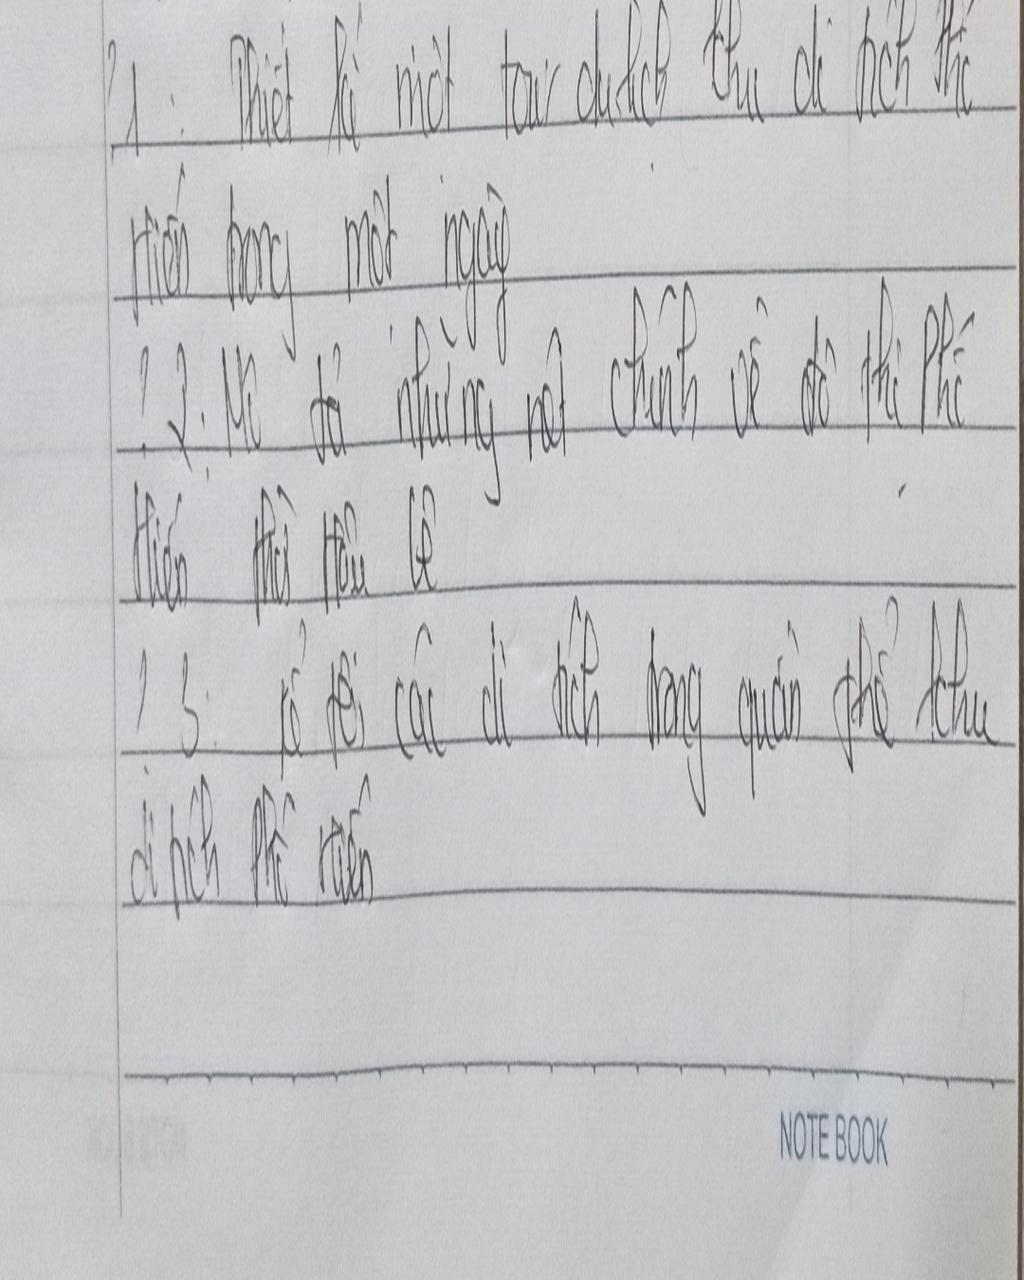 ?1: Thiết kế một tour du lịch khu di tích Phố
Hiến trong một ngày
? 2: Mô tả những nét chính về đô thị Phố
Hiến thời Hậu Lê
? 3: kể tên các di tích trong quần thể khu
di tích Phố Hiến
NOTE BOOK